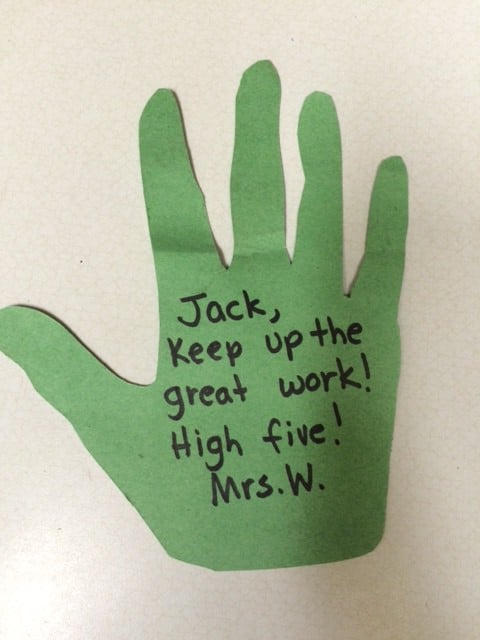 Jack,
Keep up the
great work!
High five!
Mrs. W.